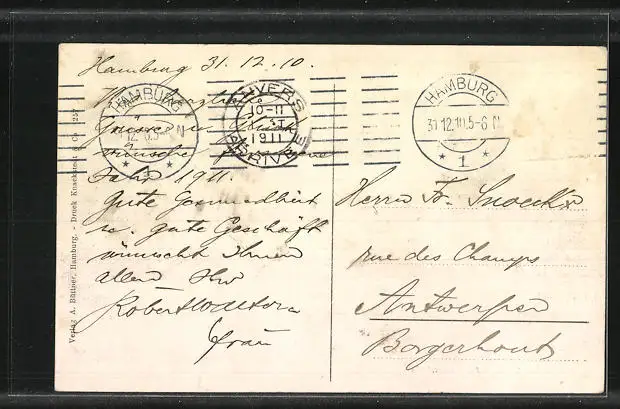 Hamburg 31.12.10.
HAMBURG
12.10.5-6 N
* 1 *
ANVERS
10-11
1911
ARRIVÉE
HAMBURG
31.12.10.5-6 N
* 1 *
Grüsse u.
wünsche
Jahr 1911.
Gute Gesundheit
u. gute Geschäft
wünscht Ihnen
allen Ihr
Robert
Frau
Herrn Fr. Snoeckx
rue des Champs
Antwerpen
Borgerhout
Verlag A. Büttner, Hamburg. - Druck Knackstedt & Co. 1257